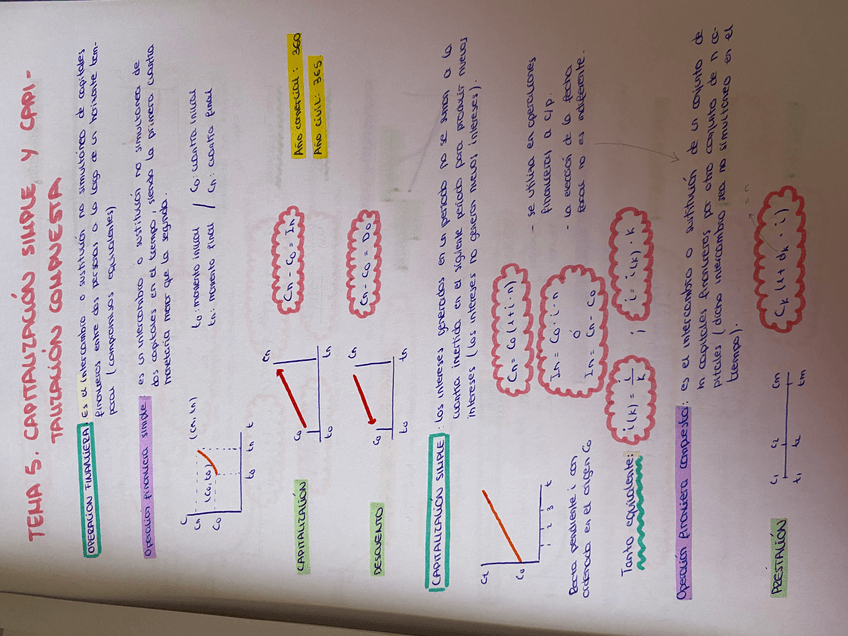 TEMA 5. CAPITALIZACIÓN SIMPLE Y CAPI-
TALIZACIÓN COMPUESTA
OPERACIÓN FINANCIERA: Es el intercambio o sustitución no simultánea de capitales
financieros entre dos personas a lo largo de un horizonte tem-
poral (compromisos equivalentes)
Operación financiera simple: es un intercambio o sustitución no simultánea de
dos capitales en el tiempo, siendo la primera cuantía
monetaria menor que la segunda.
C
Cn (Cn, tn)
C0 (C0, t0)
t0 tn t
t0: momento inicial / C0: cuantía inicial
tn: momento final / Cn: cuantía final
CAPITALIZACIÓN
C0 Cn
t0 tn
Cn - C0 = In
Año comercial: 360
Año civil: 365
DESCUENTO
C0 Cn
t0 tn
Cn - C0 = D0
CAPITALIZACIÓN SIMPLE: los intereses generados en un periodo no se suman a la
cuantía invertida en el siguiente periodo para producir nuevos
intereses (los intereses no generan nuevos intereses).
C0
1 2 3 t
Recta pendiente i con
ordenada en el origen C0
Cn = C0 (1 + i · n)
In = C0 · i · n
ó
In = Cn - C0
- se utiliza en operaciones
financieras a c/p.
- la elección de la fecha
focal no es indiferente.
Tanto equivalente: i(k) = i/k ; i = i(k) · k
Operación financiera compuesta: es el intercambio o sustitución de un conjunto de
m capitales financieros por otro conjunto de n ca-
pitales (dicho intercambio sea no simultáneo en el
tiempo).
PRESTACIÓN
C1 C2 Cm
t1 t2 tm